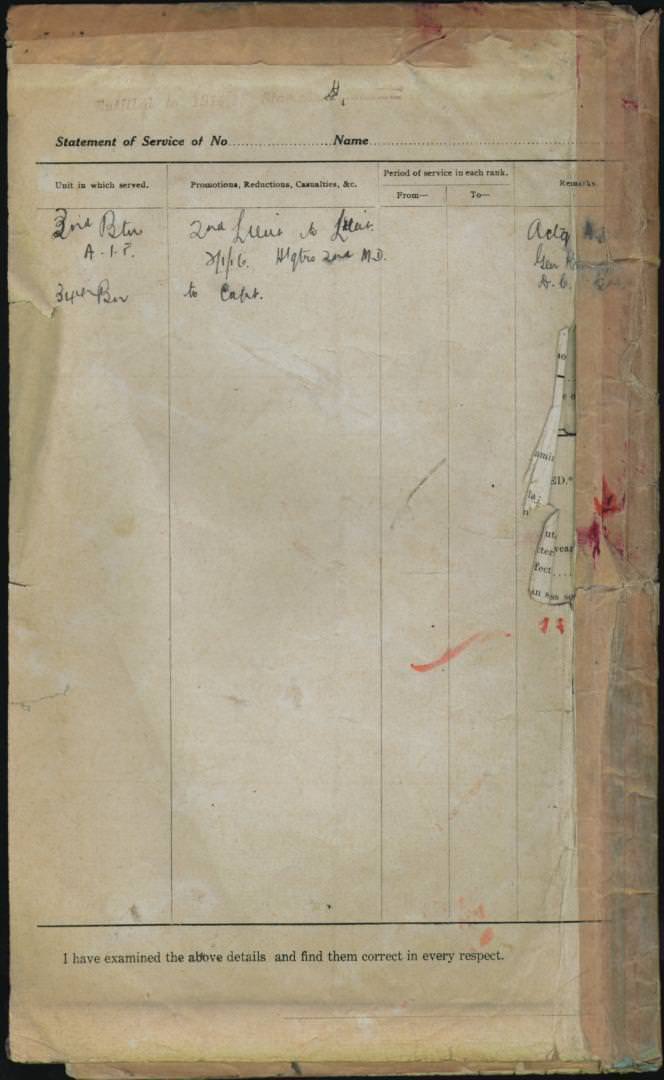 4.
Statement of Service of No.......................Name
Unit in which served. Promotions, Reductions, Casualties, &c. Period of service in each rank. Remarks.
From— To—
Btn 2nd Lieut to Lieut. Actg
A.I.F. Hdqtrs 2nd M.D. Gen
to Capt. D.
ED.*
ut
year
fect....
I have examined the above details and find them correct in every respect.